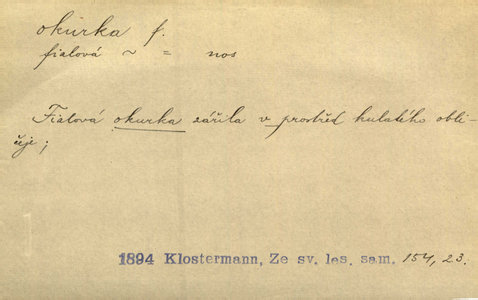 okurka f.
fialová ~ = nos
Fialová okurka zářila v prostřed kulatého obli-
čeje;
1894 Klostermann, Ze sv. les. sam. 154, 23.